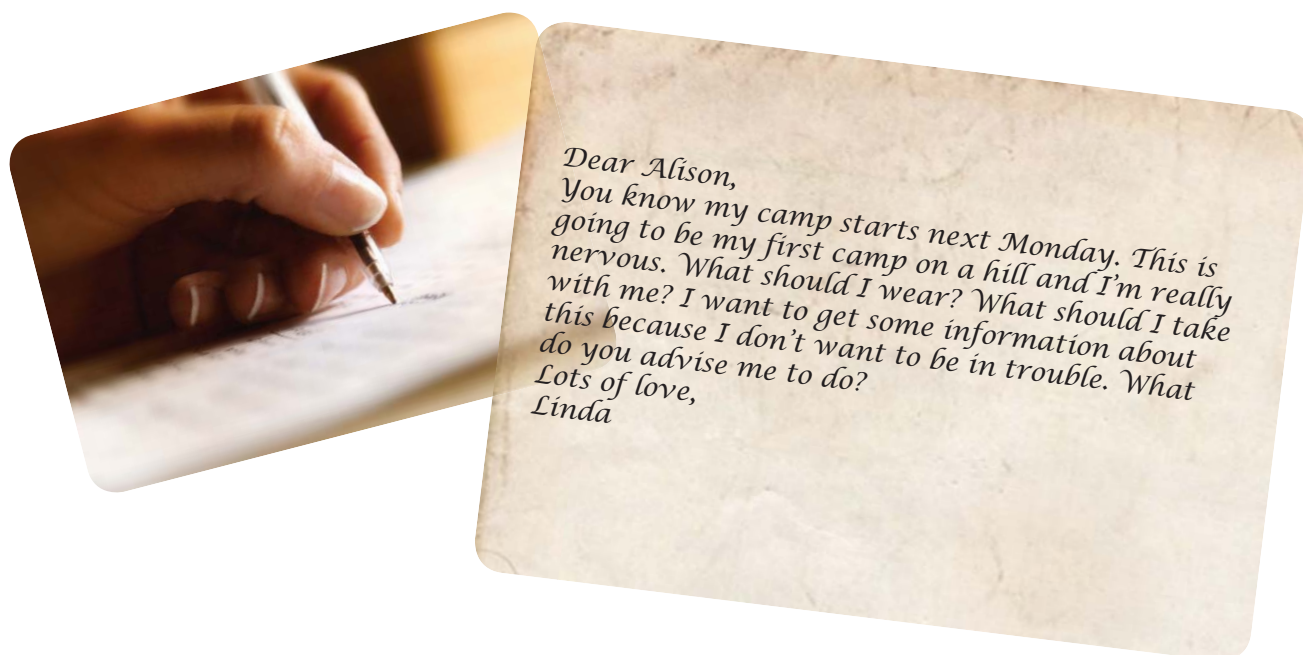 Dear Alison,
You know my camp starts next Monday. This is
going to be my first camp on a hill and I'm really
nervous. What should I wear? What should I take
with me? I want to get some information about
this because I don't want to be in trouble. What
do you advise me to do?
Lots of love,
Linda